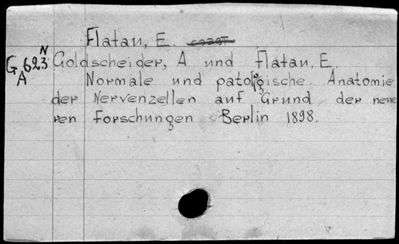 Flatau, E.
N
G 623 Goldscheider, A und Flatau, E.
A Normale und patologische Anatomie
der Nervenzellen auf Grund der neue
ren Forschungen Berlin 1898.